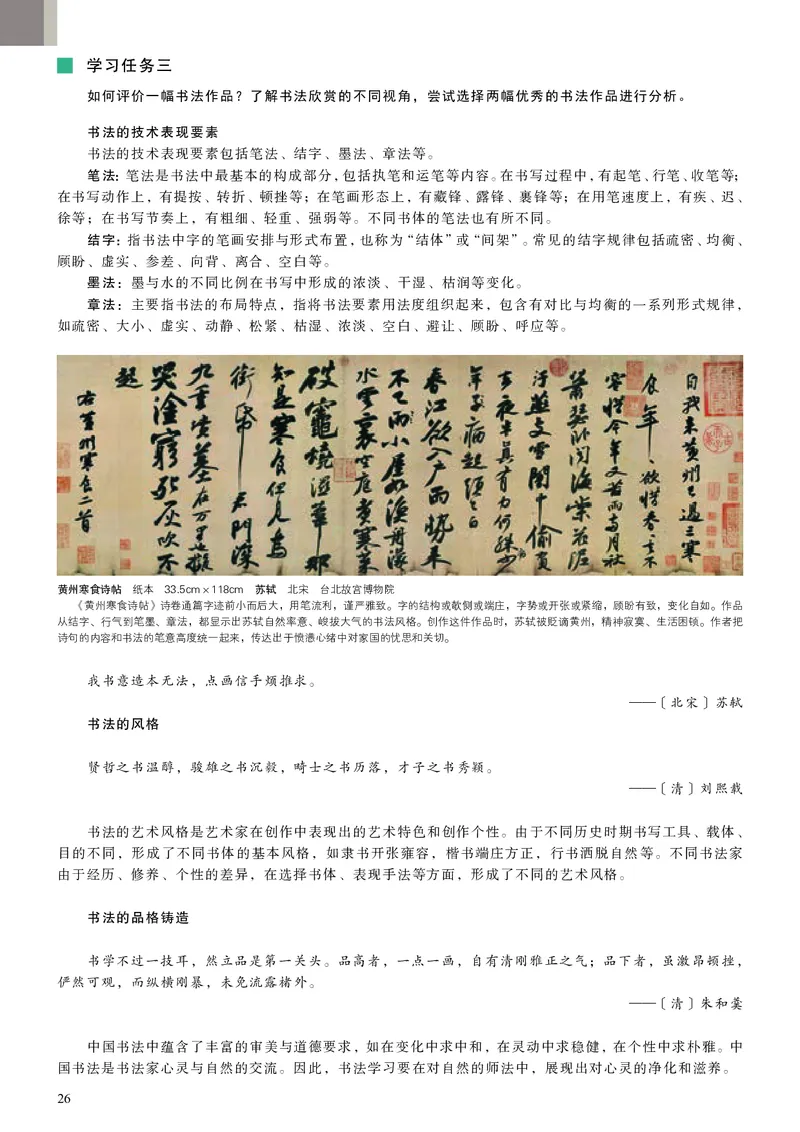 学习任务三
如何评价一幅书法作品？了解书法欣赏的不同视角，尝试选择两幅优秀的书法作品进行分析。
书法的技术表现要素
书法的技术表现要素包括笔法、结字、墨法、章法等。
笔法：笔法是书法中最基本的构成部分，包括执笔和运笔等内容。在书写过程中，有起笔、行笔、收笔等；
在书写动作上，有提按、转折、顿挫等；在笔画形态上，有藏锋、露锋、裹锋等；在用笔速度上，有疾、迟、
徐等；在书写节奏上，有粗细、轻重、强弱等。不同书体的笔法也有所不同。
结字：指书法中字的笔画安排与形式布置，也称为“结体”或“间架”。常见的结字规律包括疏密、均衡、
顾盼、虚实、参差、向背、离合、空白等。
墨法：墨与水的不同比例在书写中形成的浓淡、干湿、枯润等变化。
章法：主要指书法的布局特点，指将书法要素用法度组织起来，包含有对比与均衡的一系列形式规律，
如疏密、大小、虚实、动静、松紧、枯湿、浓淡、空白、避让、顾盼、呼应等。
自我來黃州已過三寒
食年年欲惜春春去不
容惜今年又苦雨兩月秋
蕭瑟臥聞海棠花泥
汙燕支雪闇中偷負
去夜半真有力何殊少
年子病起須已白
春江欲入戶雨勢來
不已雨小屋如漁舟濛濛
水雲裏空庖煮寒菜
破竈燒濕葦那
知是寒食但見烏
銜帋君門深
九重墳墓在万里也擬
哭塗窮死灰吹不
起
右黃州寒食二首
黄州寒食诗帖 纸本 33.5cm×118cm 苏轼 北宋 台北故宫博物院
《黄州寒食诗帖》诗卷通篇字迹前小而后大，用笔流利，谨严雅致。字的结构或欹侧或端庄，字势或开张或紧缩，顾盼有致，变化自如。作品
从结字、行气到笔墨、章法，都显示出苏轼自然率意、峻拔大气的书法风格。创作这件作品时，苏轼被贬谪黄州，精神寂寞、生活困顿。作者把
诗句的内容和书法的笔意高度统一起来，传达出于愤懑心绪中对家国的忧思和关切。
我书意造本无法，点画信手烦推求。
——〔北宋〕苏轼
书法的风格
贤哲之书温醇，骏雄之书沉毅，畸士之书历落，才子之书秀颖。
——〔清〕刘熙载
书法的艺术风格是艺术家在创作中表现出的艺术特色和创作个性。由于不同历史时期书写工具、载体、
目的不同，形成了不同书体的基本风格，如隶书开张雍容，楷书端庄方正，行书洒脱自然等。不同书法家
由于经历、修养、个性的差异，在选择书体、表现手法等方面，形成了不同的艺术风格。
书法的品格铸造
书学不过一技耳，然立品是第一关头。品高者，一点一画，自有清刚雅正之气；品下者，虽激昂顿挫，
俨然可观，而纵横刚暴，未免流露楮外。
——〔清〕朱和羹
中国书法中蕴含了丰富的审美与道德要求，如在变化中求中和，在灵动中求稳健，在个性中求朴雅。中
国书法是书法家心灵与自然的交流。因此，书法学习要在对自然的师法中，展现出对心灵的净化和滋养。
26